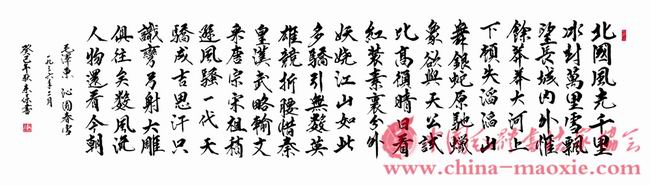 北國風光千里
冰封萬里雪飄
望長城内外惟
餘莽莽大河上
下頓失滔滔山
舞銀蛇原馳蠟
象欲與天公試
比高須晴日看
紅裝素裹分外
妖嬈江山如此
多驕引無數英
雄競折腰惜秦
皇漢武略輸文
采唐宗宋祖稍
遜風騷一代天
驕成吉思汗只
識彎弓射大雕
俱往矣數風流
人物還看今朝
毛澤東 沁園春雪
一九三六年二月
癸巳年秋 書
www.china-maoxie.com